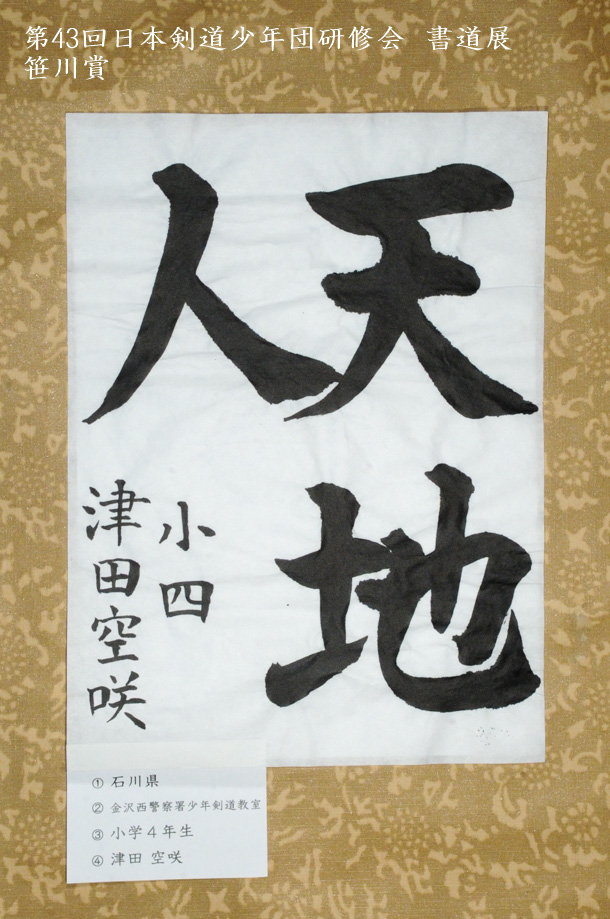 第43回日本剣道少年団研修会 書道展
笹川賞
天地
人
小四
津田空咲
① 石川県
② 金沢西警察署少年剣道教室
③ 小学４年生
④ 津田 空咲